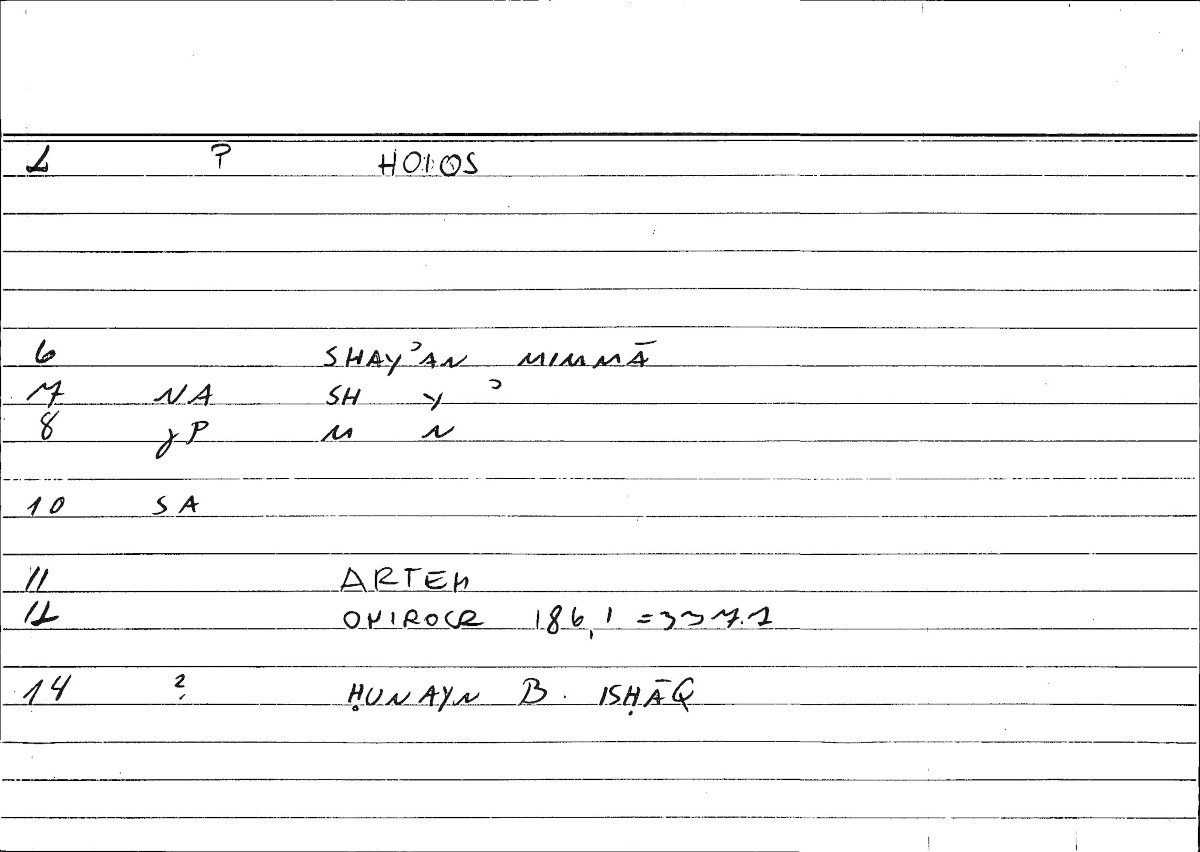 2 ? HOIOS
6 SHAYʾAN MIMMĀ
7 NA SH Y ʾ
8 JP M N
10 SA
11 ARTEM
12 ONIROCR 186,1 =337.2
14 ? ḤUNAYN B. ISḤĀQ